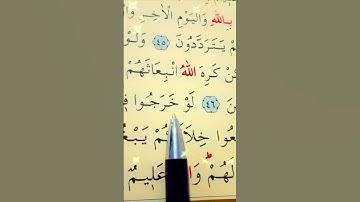 بِاللَّهِ وَالْيَوْمِ الْآخِرِ وَا
يَتَرَدَّدُونَ ﴿٤٥﴾ وَلَوْ
كَرِهَ اللَّهُ انْبِعَاثَهُمْ
﴿٤٦﴾ لَوْ خَرَجُوا
خِلَا يَبْغُ
لَهُمْ وَا عَلِيمٌ